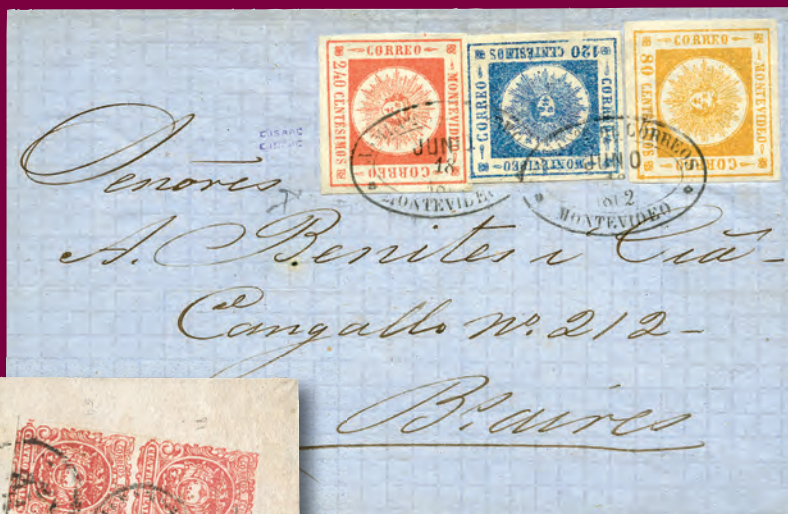 CORREO
240 CENTESIMOS
MONTEVIDEO
CORREO
120 CENTESIMOS
CORREO
CORREO
MONTEVIDEO
CORREO
80 CENTESIMOS
MONTEVIDEO
CORREO
JUNIO
18
MONTEVIDEO
CORREOS
JUNIO
MONTEVIDEO
Señores
A. Benites i Cia-
Cangallo no. 212-
Bs. aires